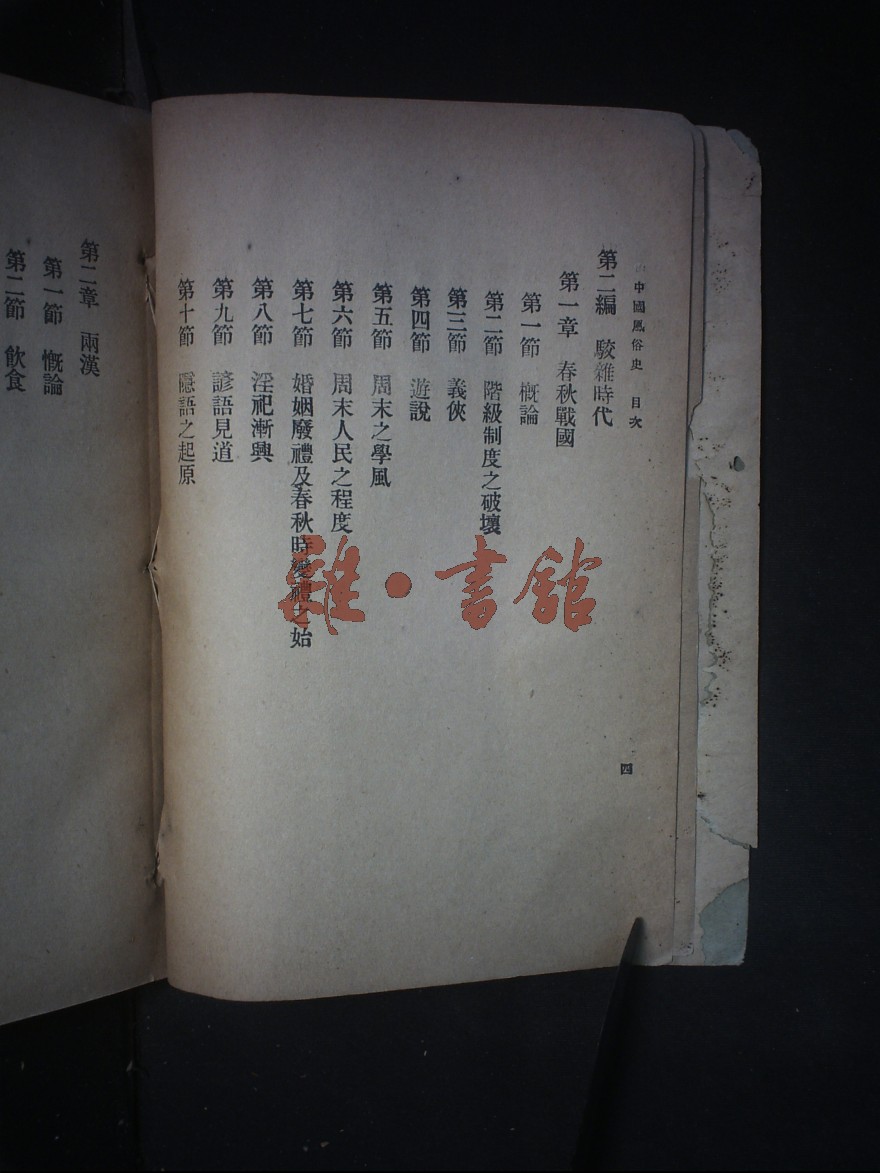 中國風俗史 目次
四
第二編 駁雜時代
第一章 春秋戰國
第一節 概論
第二節 階級制度之破壞
第三節 義俠
第四節 遊說
第五節 周末之學風
第六節 周末人民之程度
第七節 婚姻廢禮及春秋時變禮之始
第八節 淫祀漸興
第九節 諺語見道
第十節 隱語之起原
第二章 兩漢
第一節 慨論
第二節 飲食
雜·書館